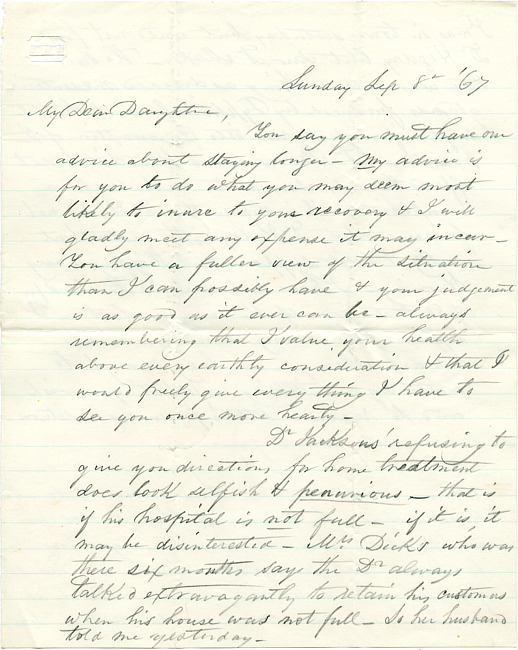 Sunday Sep 8th '67
My Dear Daughter,
You say you must have our
advice about staying longer - My advice is
for you to do what you may deem most
likely to inure to your recovery & I will
gladly meet any expense it may incur -
You have a fuller view of the situation
than I can possibly have & your judgement
is as good as it ever can be - always
remembering that I value your health
above every earthly consideration & that I
would freely give everything I have to
see you once more hearty -
Dr Jacksons' refusing to
give you directions for home treatment
does look selfish & penurious - that is
if his hospital is not full - if it is, it
may be disinterested - Mrs Dicks who was
there six months say the Dr always
talked extravagantly to retain his customers
when his house was not full - So her husband
told me yesterday -